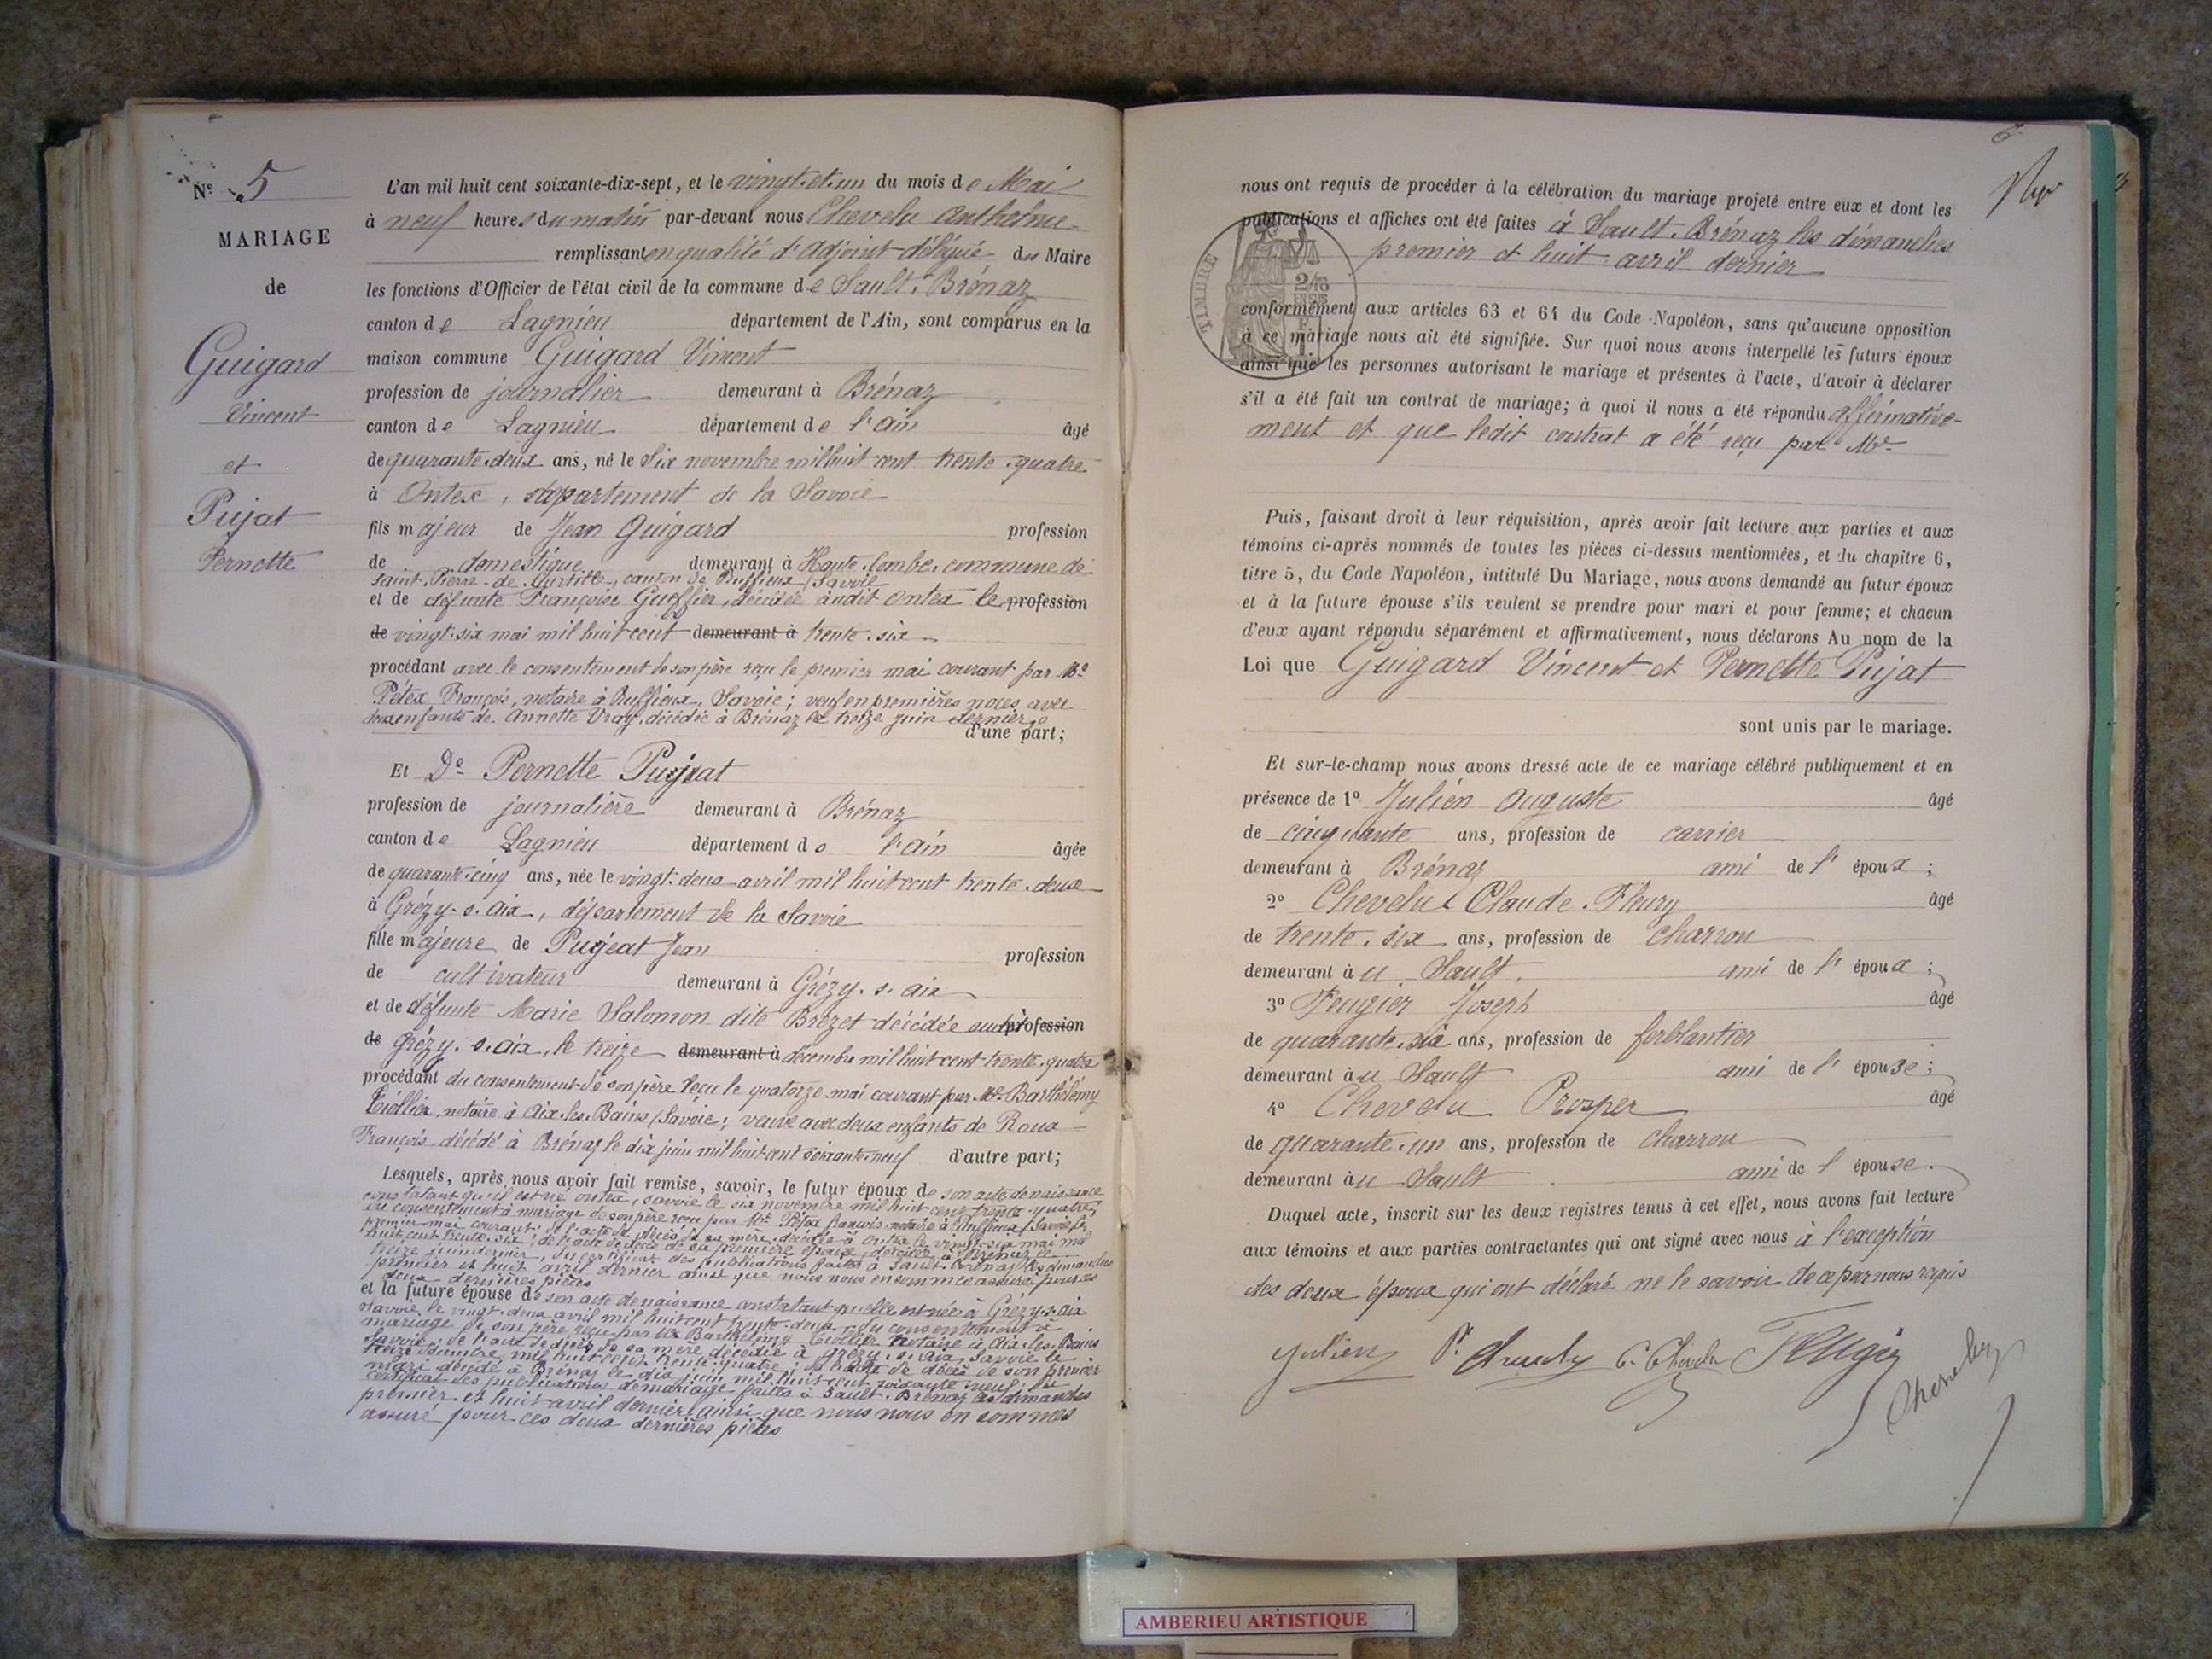 Nº 5
MARIAGE
de
Guigard
Vincent
et
Pujat
Pernette
L'an mil huit cent soixante-dix-sept, et le vingt-et-un du mois de Mai
à neuf heures du matin par-devant nous Chevelu Anthelme
remplissant en qualité d'Adjoint délégué du Maire
les fonctions d'Officier de l'état civil de la commune de Sault-Brénaz
canton de Lagnieu département de l'Ain, sont comparus en la
maison commune Guigard Vincent
profession de journalier demeurant à Brénaz
canton de Lagnieu département de l'ain âgé
de quarante-deux ans, né le Six novembre mil huit cent trente-quatre
à Ontex, département de la Savoie
fils majeur de Jean Guigard profession
de domestique demeurant à Haute-Combe, commune de
saint-Pierre-de-Curtille, canton de Ruffieux, Savoie
et de défunte Françoise Gueffier, décédée audit Ontex le profession
de vingt-six mai mil huit cent demeurant à trente-six
procédant avec le consentement de son père reçu le premier mai courant par Me
Pétex François, notaire à Ruffieux, Savoie; veuf en premières noces avec
deux enfants de Annette Vray, décédée à Brénaz le treize juin dernier
d'une part;
Et De Pernette Pujat
profession de journalière demeurant à Brénaz
canton de Lagnieu département de l'ain âgée
de quarante-cinq ans, née le vingt-deux avril mil huit cent trente-deux
à Grézy-s-aix, département de la Savoie
fille majeure de Pujeat Jean profession
de cultivateur demeurant à Grézy-s-aix
et de défunte Marie Salomon dite Brézet décédée audit profession
de Grézy-s-aix, le treize demeurant à décembre mil huit cent trente-quatre
procédant du consentement de son père reçu le quatorze mai courant par Me Barthélemy
notaire à Aix-les-Bains, Savoie; veuve avec deux enfants de Roux
François décédé à Brénaz le dix juin mil huit cent soixante-neuf d'autre part;
Lesquels, après nous avoir fait remise, savoir, le futur époux de son acte de naissance
constatant qu'il est né ontex, savoie le six novembre mil huit cent trente-quatre,
du consentement à mariage de son père reçu par Me Pétex françois notaire à Ruffieux, Savoie le
premier mai courant; de l'acte de décès de sa mère, décédée à Ontex le vingt-six mai mil
huit cent trente-six; de l'acte de décès de sa première épouse, décédée à Brénaz le
treize juin dernier, du certificat des publications faites à Sault-Brénaz les dimanches
premier et huit avril dernier ainsi que nous nous en sommes assuré pour ces
deux dernières pièces
et la future épouse de son acte de naissance constatant qu'elle est née à Grézy-s-aix
Savoie, le vingt-deux avril mil huit cent trente-deux, du consentement à
mariage de son père reçu par Me Barthélemy notaire à Aix-les-Bains
Savoie; de l'acte de décès de sa mère décédée à Grézy-s-aix, Savoie le
treize décembre mil huit cent trente-quatre; de l'acte de décès de son premier
mari décédé à Brénaz le dix juin mil huit cent soixante-neuf; du
certificat des publications de mariage faites à Sault-Brénaz les dimanches
premier et huit avril dernier ainsi que nous nous en sommes
assuré pour ces deux dernières pièces
nous ont requis de procéder à la célébration du mariage projeté entre eux et dont les
publications et affiches ont été faites à Sault-Brénaz les dimanches
premier et huit avril dernier
TIMBRE
2/10
EN SUS
conformément aux articles 63 et 64 du Code Napoléon, sans qu'aucune opposition
à ce mariage nous ait été signifiée. Sur quoi nous avons interpellé les futurs époux
ainsi que les personnes autorisant le mariage et présentes à l'acte, d'avoir à déclarer
s'il a été fait un contrat de mariage; à quoi il nous a été répondu affirmative-
ment et que ledit contrat a été reçu par Me
Puis, faisant droit à leur réquisition, après avoir fait lecture aux parties et aux
témoins ci-après nommés de toutes les pièces ci-dessus mentionnées, et du chapitre 6,
titre 5, du Code Napoléon, intitulé Du Mariage, nous avons demandé au futur époux
et à la future épouse s'ils veulent se prendre pour mari et pour femme; et chacun
d'eux ayant répondu séparément et affirmativement, nous déclarons Au nom de la
Loi que Guigard Vincent et Pernette Pujat
sont unis par le mariage.
Et sur-le-champ nous avons dressé acte de ce mariage célébré publiquement et en
présence de 1º Julien Auguste âgé
de cinquante ans, profession de carrier
demeurant à Brénaz ami de l'époux;
2º Chevelu Claude-Fleury âgé
de trente-six ans, profession de charron
demeurant au Sault ami de l'époux;
3º Feugier Joseph âgé
de quarante-six ans, profession de ferblantier
demeurant au Sault ami de l'épouse;
4º Chevelu Prosper âgé
de quarante-un ans, profession de charron
demeurant au Sault ami de l'épouse.
Duquel acte, inscrit sur les deux registres tenus à cet effet, nous avons fait lecture
aux témoins et aux parties contractantes qui ont signé avec nous à l'exception
des deux époux qui ont déclaré ne le savoir de ce par nous requis
Julien P. Chevelu C. Chevelu Feugier
Chevelu
AMBERIEU ARTISTIQUE